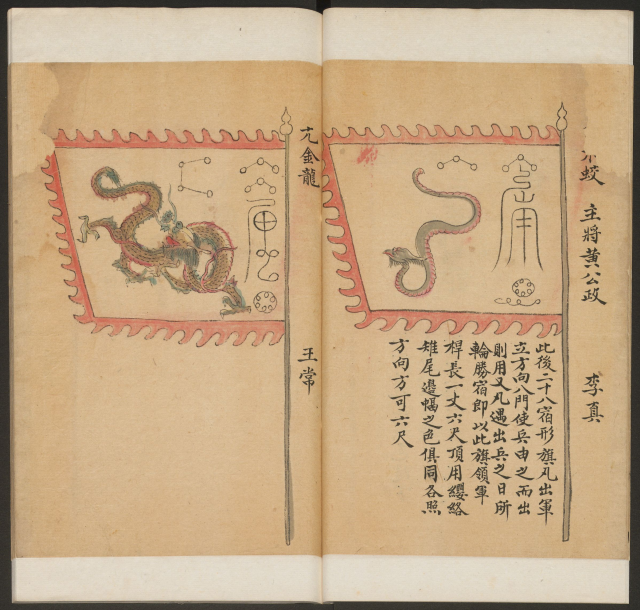 木蛟 主將黃公政 李真
此後二十八宿形旗凡出軍
立方向八門使兵由之而出
則用又凡遇出兵之日所
輪勝宿即以此旗領軍
桿長一丈六尺頂用纓絡
雉尾邊幅之色俱同各照
方向方可六尺
亢金龍 王常